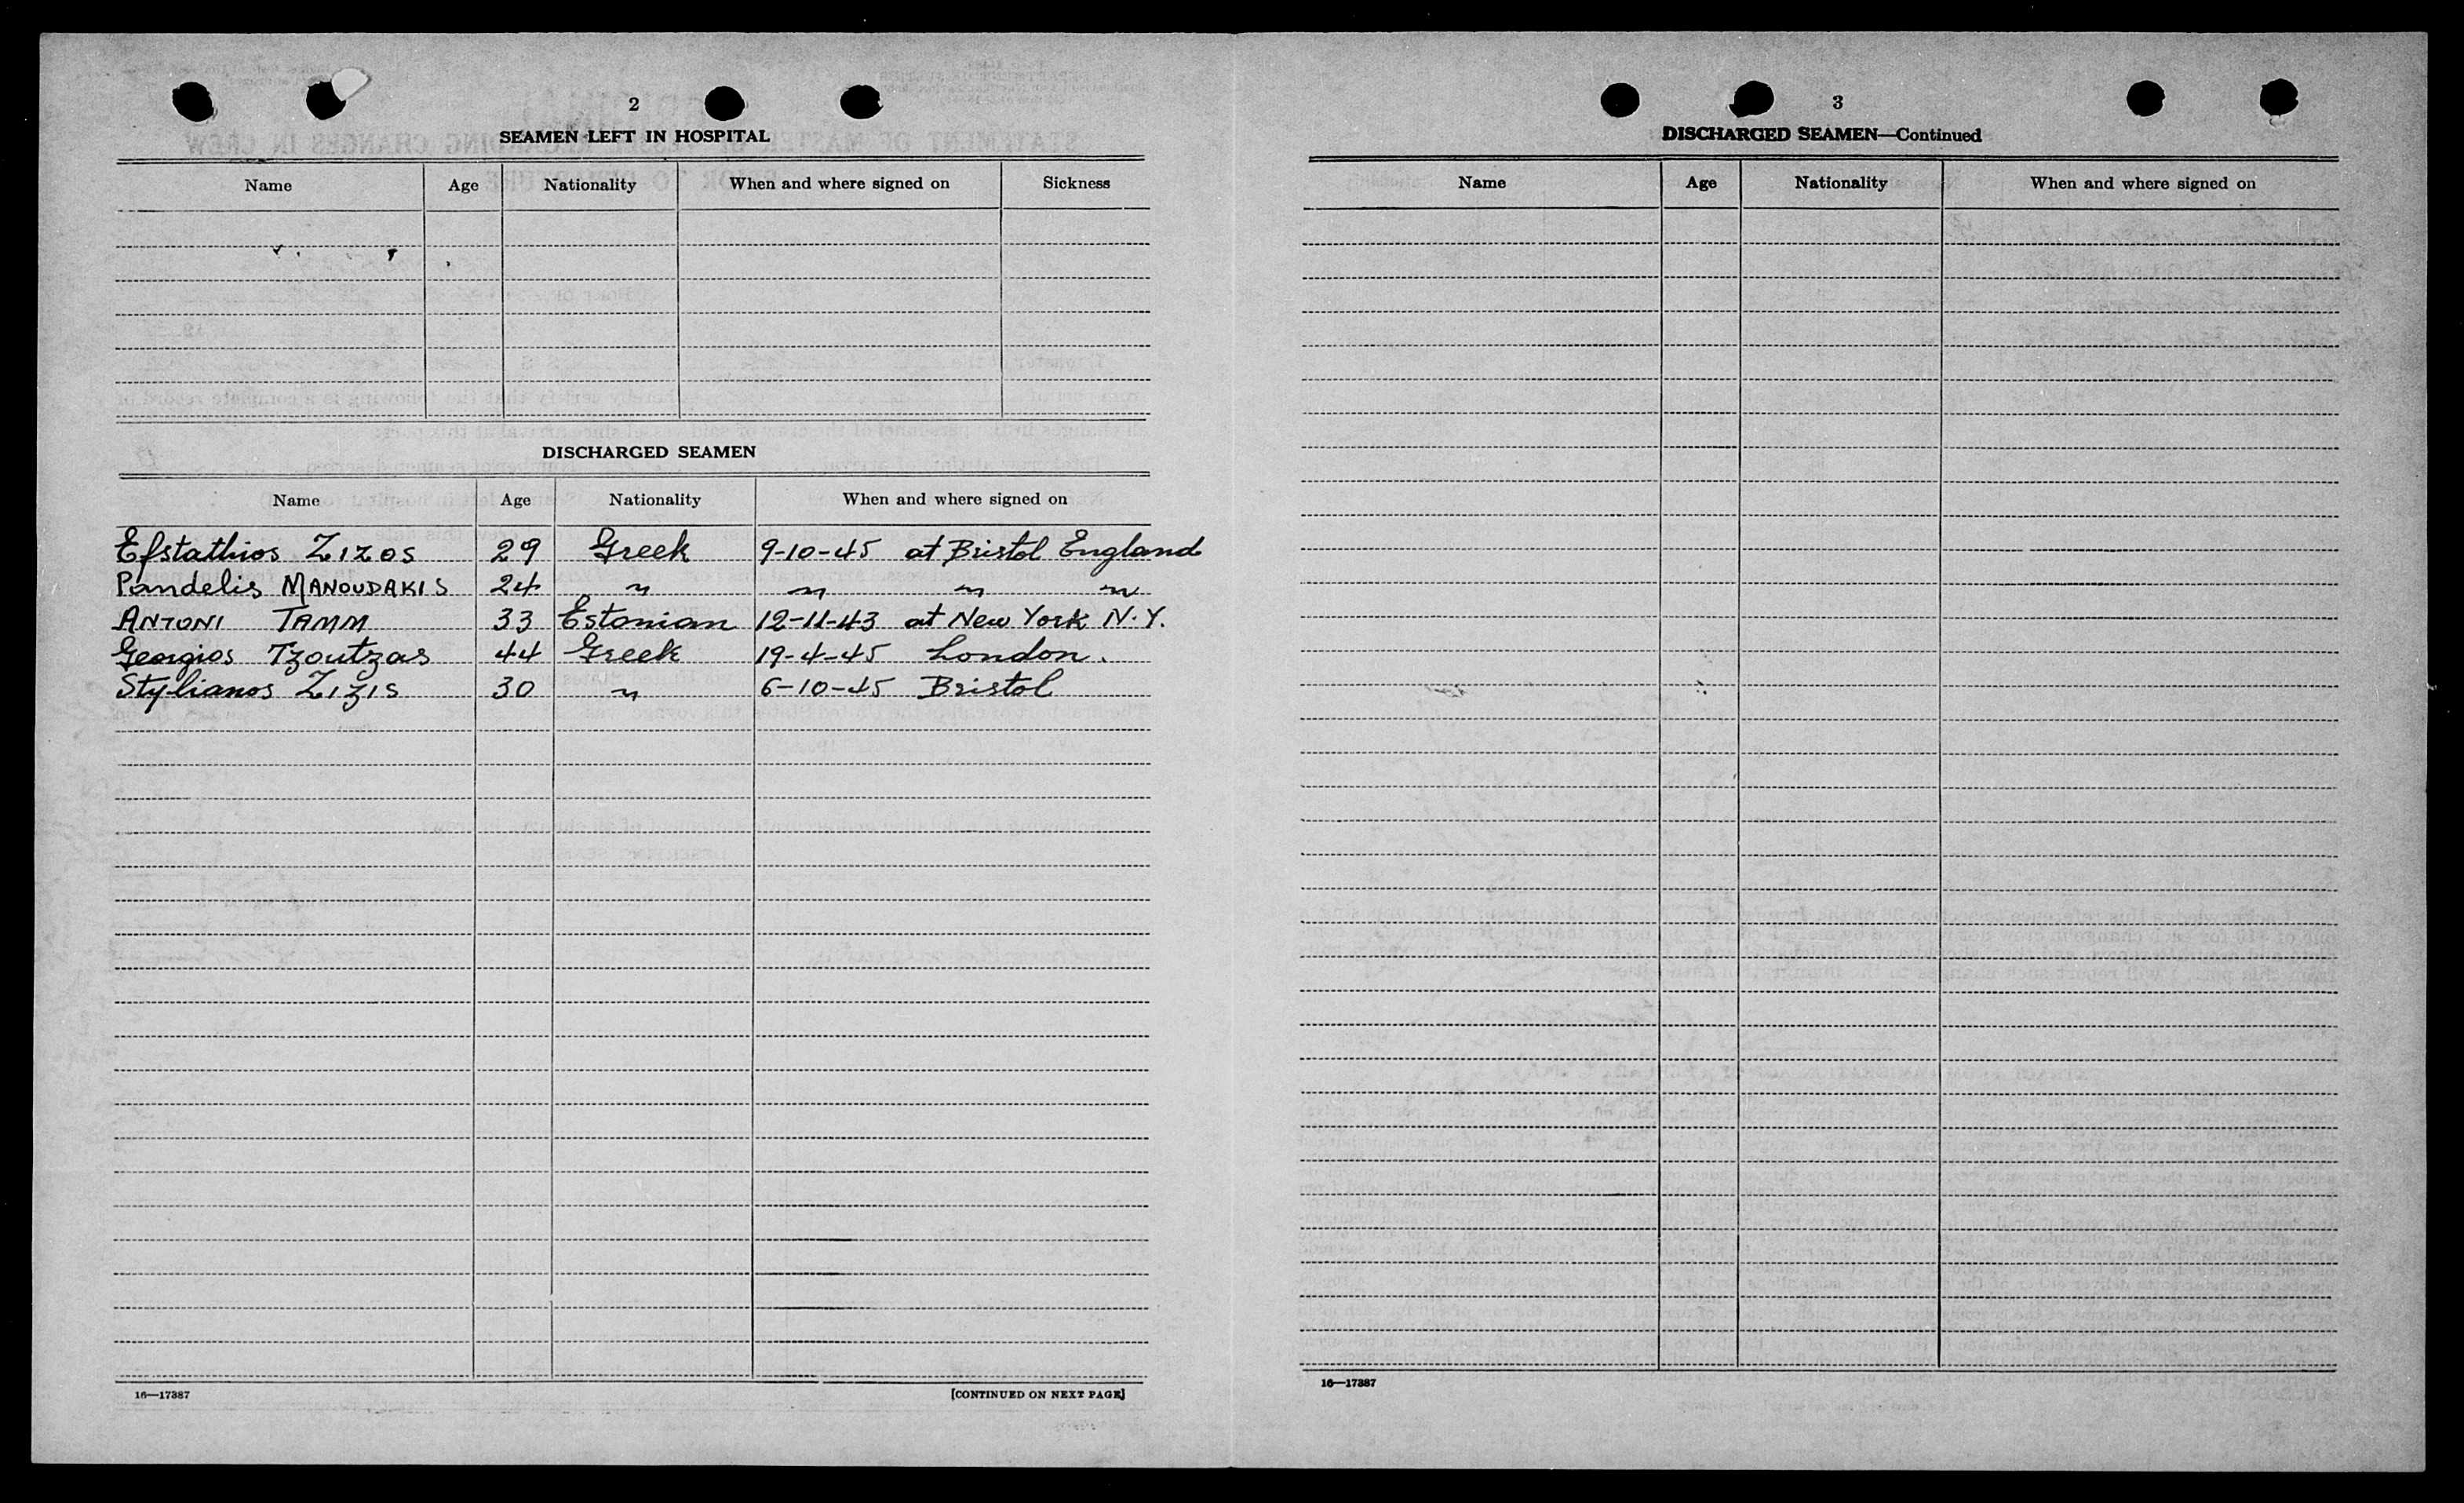 2
SEAMEN LEFT IN HOSPITAL
Name Age Nationality When and where signed on Sickness
DISCHARGED SEAMEN
Name Age Nationality When and where signed on
Efstathios Zizos 29 Greek 9-10-45 at Bristol England
Pandelis MANOUDAKIS 24 " " " "
ANTONI TAMM 33 Estonian 12-11-43 at New York N.Y.
Georgios Tzoutzas 44 Greek 19-4-45 London.
Stylianos Zizis 30 " 6-10-45 Bristol
16—17387 [CONTINUED ON NEXT PAGE]
3
DISCHARGED SEAMEN—Continued
Name Age Nationality When and where signed on
16—17387